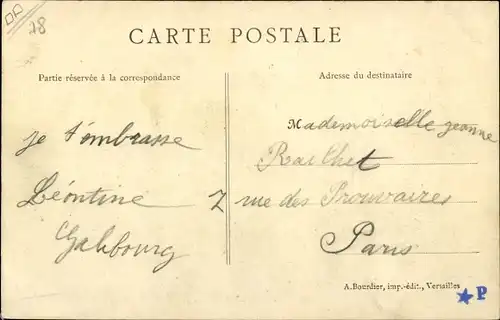 78
CARTE POSTALE
Partie réservée à la correspondance
Adresse du destinataire
je t'embrasse
Léontine
Galibourg
Mademoiselle jeanne
Railhet
7 rue des Prouvaires
Paris
A. Bourdier, imp.-édit., Versailles
P